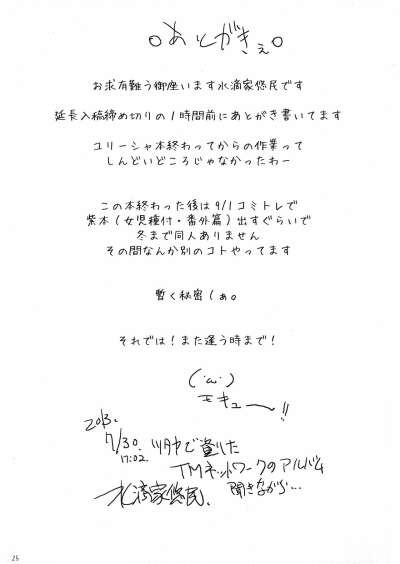 。あとがきぇ。
お求有難う御座います水滴家悠民です
延長入稿締め切りの1時間前にあとがき書いてます
ユリーシャ本終わってからの作業って
しんどいどころじゃなかったわー
この本終わった後は9/1コミトレで
紫本(女児種付・番外篇)出すぐらいで
冬まで同人ありません
その間なんか別のコトやってます
暫く秘密(ぁ。
それでは!また逢う時まで!
(´ω`)
モキュー〜!!
2013.
7/30.
17:02.
TMネットワークのアルバム
聞きながら…
水滴家悠民.
25